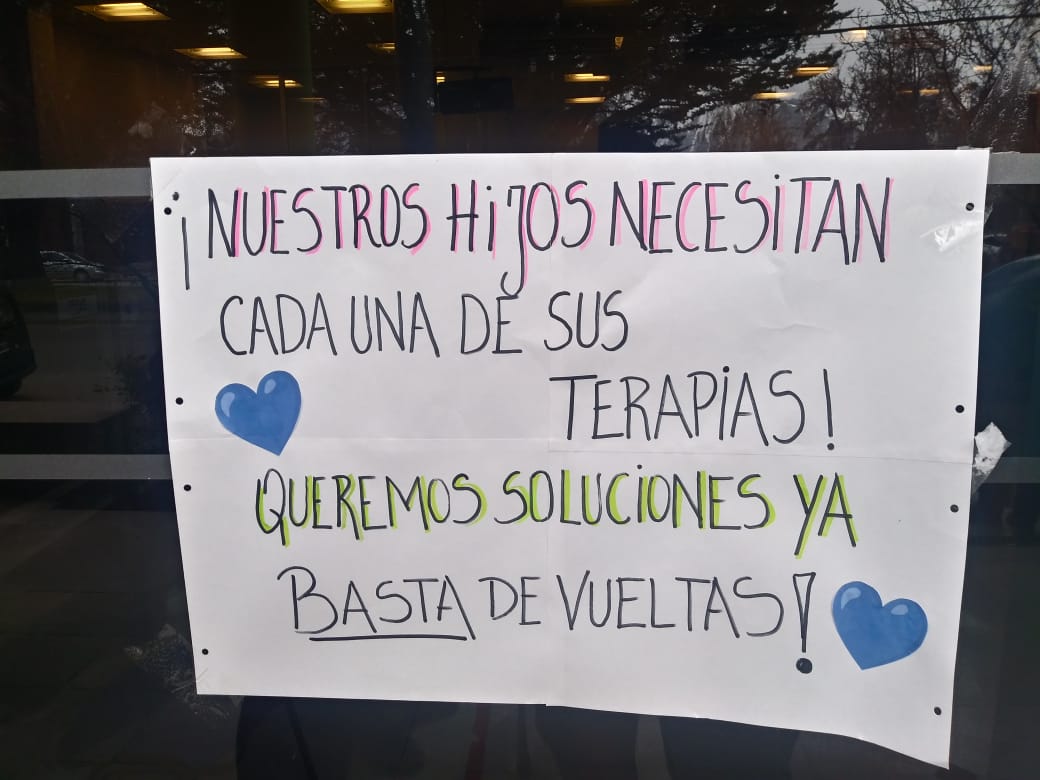 ¡NUESTROS HiJOS NECESiTAN
CADA UNA DE SUS
TERAPiAS!
QUEREMOS SOLUCiONES YA
BASTA DE VUELTAS!